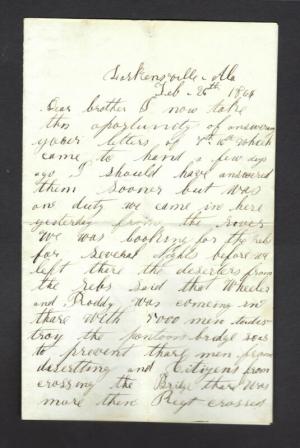 Larkensville Ala
Feb 25th 1864
Dear brother I now take
this oportunity of answering
youer letters of 7th 10th which
came to hand a few days
ago I should have answered
them sooner but was
one duty we came in here
yesterday from the river
We was looking for the rebs
for several nights before we
left there the deserters from
the rebs said that Wheeler
and Roddy was comeing in
thare with 7000 men to des
troy the pontoon bridge soas
to prevent thare men from
disertting and Citizens from
crossing the Bridge thare was
more then Regt crossed